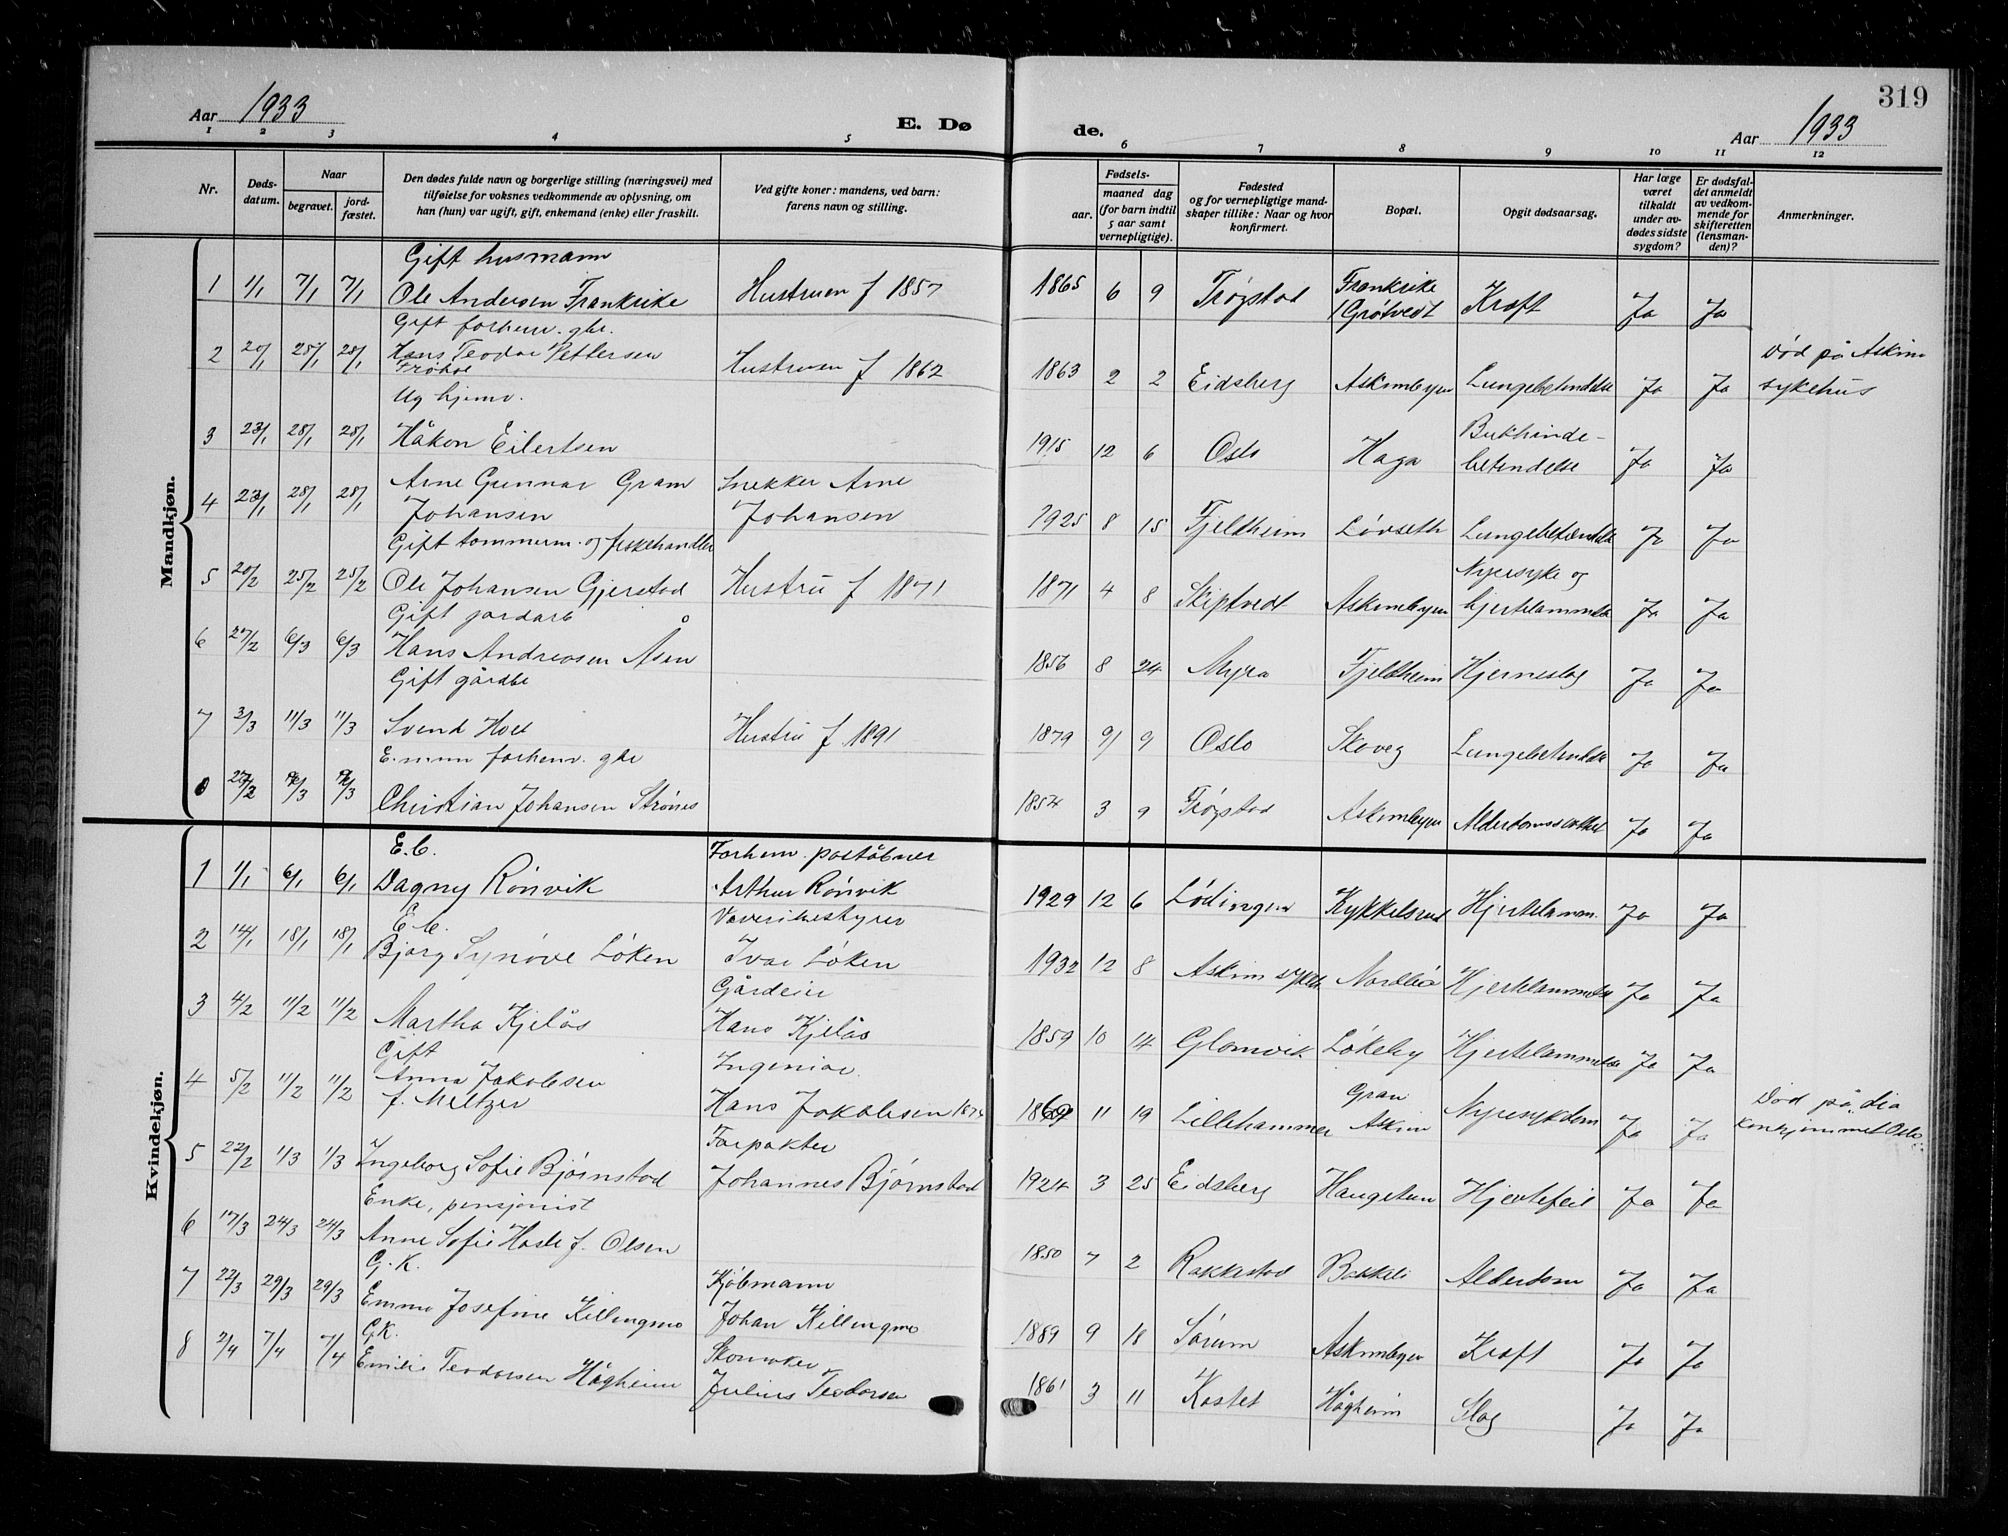 319
Aar 1933 E. Dø de. Aar 1933
1 2 3 4 5 6 7 8 9 10 11 12
Nr. Døds-datum. Naar begravet. jord-fæstet. Den dødes fulde navn og borgerlige stilling (næringsvei) med tilføielse for voksnes vedkommende av oplysning, om han (hun) var ugift, gift, enkemand (enke) eller fraskilt. Ved gifte koner: mandens, ved barn: farens navn og stilling. Fødsels- aar. maaned dag (for barn indtil 5 aar samt vernepligtige). Fødested og for vernepligtige mand-skaper tillike: Naar og hvor konfirmert. Bopæl. Opgit dødsaarsag. Har læge været tilkaldt under av-dødes sidste sygdom? Er dødsfal-det anmeldt av vedkom-mende for skifteretten (lensman-den)? Anmerkninger.
Mandkjøn.
Gift husmann
1 1/1 7/1 7/1 Ole Andersen Frankrike Hustruen f 1857 1865 6 9 Trøgstad Frankrike /Grøtvedt Kræft Ja Ja
Gift forhenv. gbr.
2 20/1 28/1 28/1 Hans Teodor Pettersen Hustruen f 1862 1863 2 2 Eidsberg Askimbyen Lungebetendelse Ja Ja Død på Askim sykehus
Ug hjemv.
3 23/1 28/1 28/1 Håkon Eilertsen 1915 12 6 Oslo Haga Bukhinde-betendelse Ja Ja
Arne Gunnar Gram Snekker Arne
4 23/1 28/1 28/1 Johansen Johansen 1925 8 15 Fjeldheim Løvseth Lungebetændelse Ja Ja
Gift tømmerm. og fiskehandler
5 20/2 25/2 25/2 Ole Johansen Gjerstad Hustru f 1871 1871 4 8 Skiptvedt Askimbyen Nyresyke og hjertelammelse Ja Ja
Gift jordarb
6 27/2 6/3 6/3 Hans Andreasen Åsen 1856 8 24 Myra Fjeldheim Hjerneslag Ja Ja
Gift gårdbr
7 3/3 11/3 11/3 Svend Hoel Hustru f. 1891 1879 9 9 Oslo Skoveg Lungebetendelse Ja Ja
E.mann forhenv. gbr
Christian Johansen Strønes 1854 3 9 Trøgstad Askimbyen Ja Ja
Kvindekjøn.
E.b. Forhenv. poståbner
1 1/1 6/1 6/1 Dagny Rønvik Arthur Rønvik 1929 12 6 Lødingen Kykkelsrud Hjertelamm. Ja Ja
E.b.
2 14/1 18/1 18/1 Bjørg Synøve Løken Ivar Løken 1932 12 8 Askim sykeh. Nordliø Hjertelammelse Ja Ja
Gårdeier
3 4/2 11/2 11/2 Martha Kjelås Hans Kjelås 1859 10 14 Glomvik Løkeby Hjertelammelse Ja Ja
Gift Ingeniør.
4 5/2 11/2 11/2 Anna Jakobsen f. Meltzer Hans Jakobsen 1869 11 19 Lillehammer Gran Askim Nyresykdom Ja Ja Død på Dia konhjemmet Oslo.
Forpakter
5 22/2 1/3 1/3 Ingeborg Sofie Bjørnstad Johannes Bjørnstad 1924 3 25 Eidsberg Haugstun Hjertefeil Ja Ja
Enke, pensjonist
6 17/3 24/3 24/3 Anne Sofie Hasle f. Olsen 1850 7 2 Rakkestad Bakkeli Alderdom Ja Ja
G.K. Kjøbmann
7 22/3 29/3 29/3 Emma Josefine Killingmo Johan Killingmo 1889 9 18 Sørum Askimbyen Kræft Ja Ja
G.K. Skomaker
8 2/4 7/4 7/4 Emilie Teodorsen Hågheim Julius Teodorsen 1861 3 11 Kastet Hågheim Slag Ja Ja